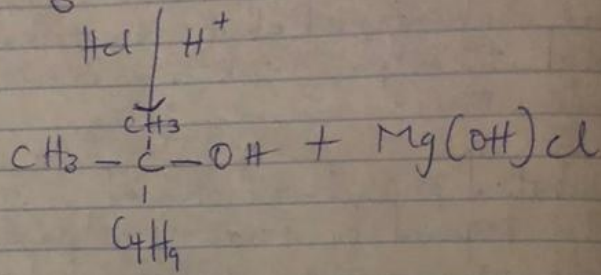 Hcl H+
CH3
CH3 - C - OH + Mg(OH)cl
C4H9